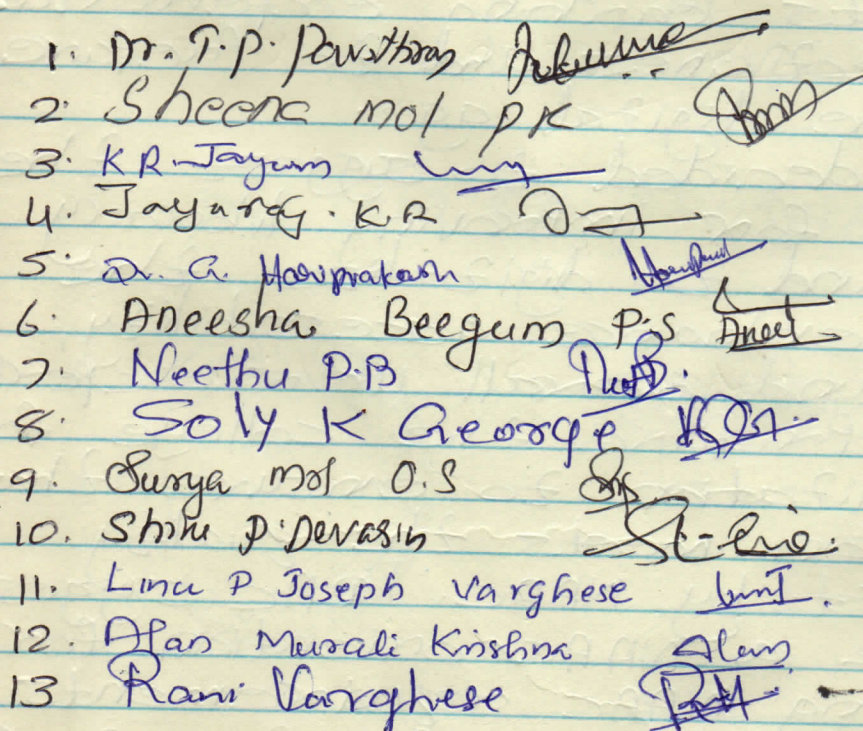 1. Dr. T. P. Pavithran
2. Sheena mol PK
3. K R. Jayan
4. Jayaraj. K.R
5. Dr. G. Hariprakash
6. Aneesha Beegum P.S Anees
7. Neethu P.B
8. Soly K George
9. Surya mol O.S
10. Shinu P. Devasia
11. Linu P Joseph Varghese
12. Alan Murali Krishna Alan
13 Rani Varghese